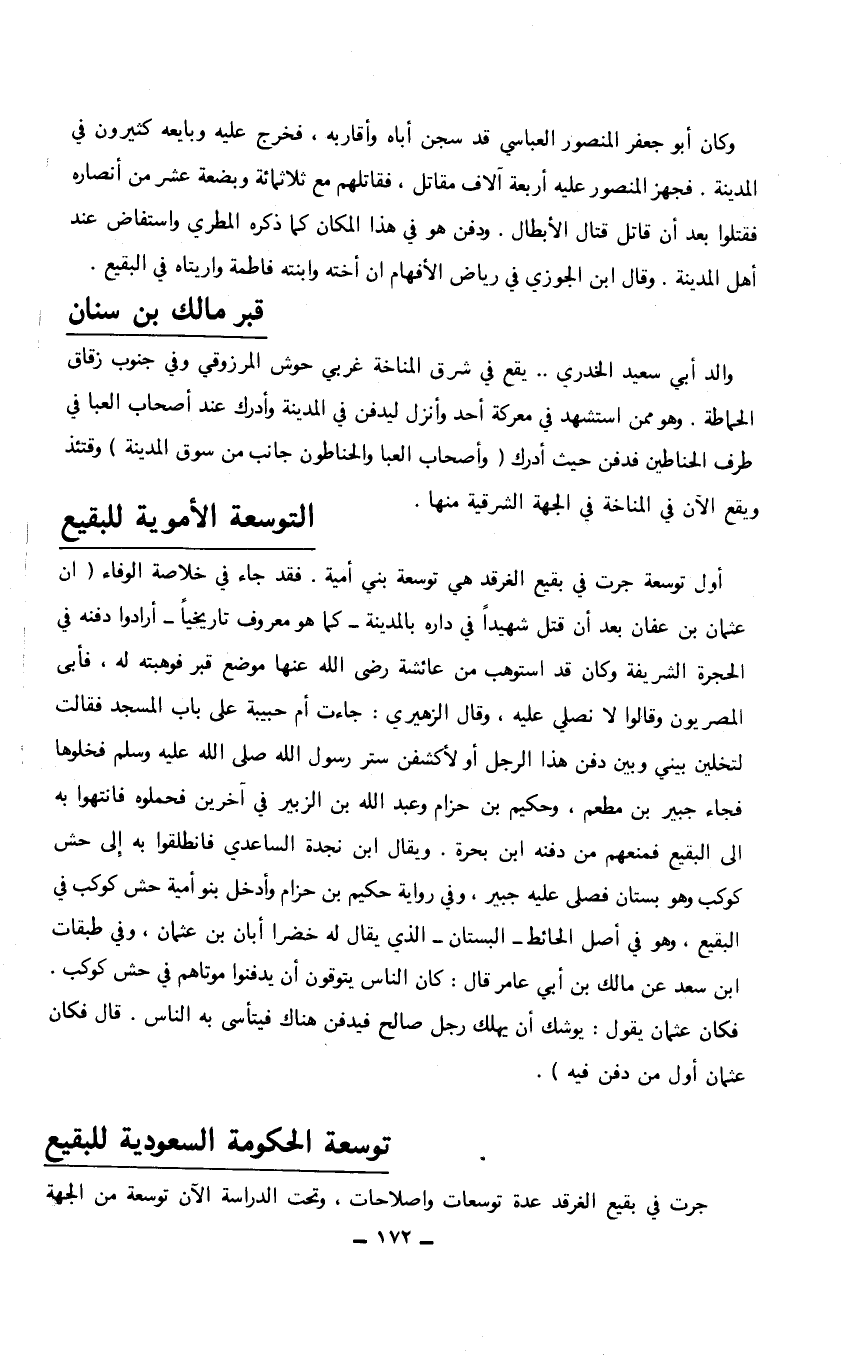 وكان أبو جعفر المنصور العباسي قد سجن أباه وأقاربه ، فخرج عليه وبايعه كثيرون في
المدينة . فجهز المنصور عليه أربعة آلاف مقاتل ، فقاتلهم مع ثلاثمائة وبضعة عشر من أنصاره
فقتلوا بعد أن قاتل قتال الأبطال . ودفن هو في هذا المكان كما ذكره المطري واستفاض عند
أهل المدينة . وقال ابن الجوزي في رياض الأفهام ان أخته وابنته فاطمة واريتاه في البقيع .
قبر مالك بن سنان
والد أبي سعيد الخدري .. يقع في شرق المناخة غربي حوش المرزوقي وفي جنوب زقاق
الحماطة . وهو ممن استشهد في معركة أحد وأنزل ليدفن في المدينة وأدرك عند أصحاب العبا في
طرف الحناطين فدفن حيث أدرك ( وأصحاب العبا والحناطون جانب من سوق المدينة ) وقتئذ
ويقع الآن في المناخة في الجهة الشرقية منها .
التوسعة الأموية للبقيع
أول توسعة جرت في بقيع الغرقد هي توسعة بني أمية . فقد جاء في خلاصة الوفاء ( ان
عثمان بن عفان بعد أن قتل شهيداً في داره بالمدينة ـ كما هو معروف تاريخياً ـ أرادوا دفنه في
الحجرة الشريفة وكان قد استوهب من عائشة رضى الله عنها موضع قبر فوهبته له ، فأبى
المصريون وقالوا لا نصلي عليه ، وقال الزهيري : جاءت أم حبيبة على باب المسجد فقالت
لتخلين بيني وبين دفن هذا الرجل أو لأكشفن ستر رسول الله صلى الله عليه وسلم فخلوها
فجاء جبير بن مطعم ، وحكيم بن حزام وعبد الله بن الزبير في آخرين فحملوه فانتهوا به
الى البقيع فمنعهم من دفنه ابن بحرة . ويقال ابن نجدة الساعدي فانطلقوا به إلى حش
كوكب وهو بستان فصلى عليه جبير ، وفي رواية حكيم بن حزام وأدخل بنو أمية حش كوكب في
البقيع ، وهو في أصل الحائط ـ البستان ـ الذي يقال له خضرا أبان بن عثمان ، وفي طبقات
ابن سعد عن مالك بن أبي عامر قال : كان الناس يتوقون أن يدفنوا موتاهم في حش كوكب .
فكان عثمان يقول : يوشك أن يهلك رجل صالح فيدفن هناك فيتأسى به الناس . قال فكان
عثمان أول من دفن فيه ) .
توسعة الحكومة السعودية للبقيع
جرت في بقيع الغرقد عدة توسعات واصلاحات ، وتحت الدراسة الآن توسعة من الجهة
ـ ١٧٢ ـ